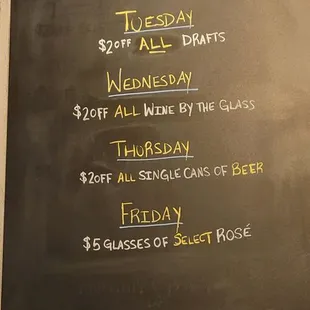 TUESDAY
$2OFF ALL DRAFTS
WEDNESDAY
$2OFF ALL WINE BY THE GLASS
THURSDAY
$2OFF ALL SINGLE CANS OF BEER
FRIDAY
$5 GLASSES OF SELECT ROSÉ